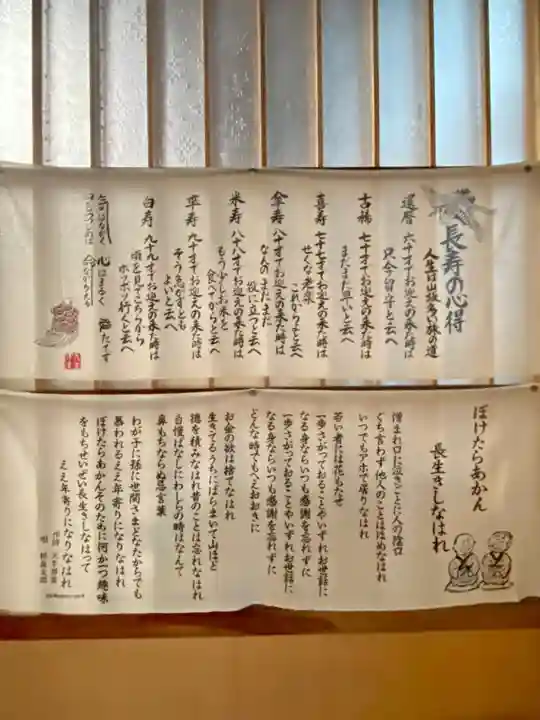 長寿の心得
人生は山坂多い旅の道
還暦 六十才でお迎えの来た時は
只今留守と云へ
古稀 七十才でお迎えの来た時は
まだまだ早いと云へ
喜寿 七十七才でお迎えの来た時は
せくな老楽
これからよと云へ
傘寿 八十才でお迎えの来た時は
なんのまだまだ
役に立つと云へ
米寿 八十八才でお迎えの来た時は
もう少しお米を
食べてからと云へ
卒寿 九十才でお迎えの来た時は
そう急がずとも
よいと云へ
白寿 九十九才でお迎えの来た時は
頃を見てこちらから
ボツボツ行くと云へ
気はながく 心はまるく 腹たてず
命ながかれ
ぼけたらあかん
長生きしなはれ
憎まれ口に泣きごとに人の陰口
ぐち言わず他人のことはほめなはれ
いつでもアホで居りなはれ
若い者には花もたせ
一歩さがっておることやいずれお世話に
なる身ならいつも感謝を忘れずに
一歩さがっておることやいずれお世話に
なる身ならいつも感謝を忘れずに
どんな時でもへえおおきに
お金の欲は捨てなはれ
生きてるうちにばらまいて山ほど
徳を積みなはれ昔のことは忘れなはれ
自慢ばなしにわしらの時はなんて
鼻もちならぬ忌言葉
わが子に孫に世間さまどなたからでも
慕われるええ年寄りになりなはれ
ぼけたらあかんそのために何か一つ趣味
をもちせいぜい長生きしなはって
ええ年寄りになりなはれ
作詩 天牛将富
唄